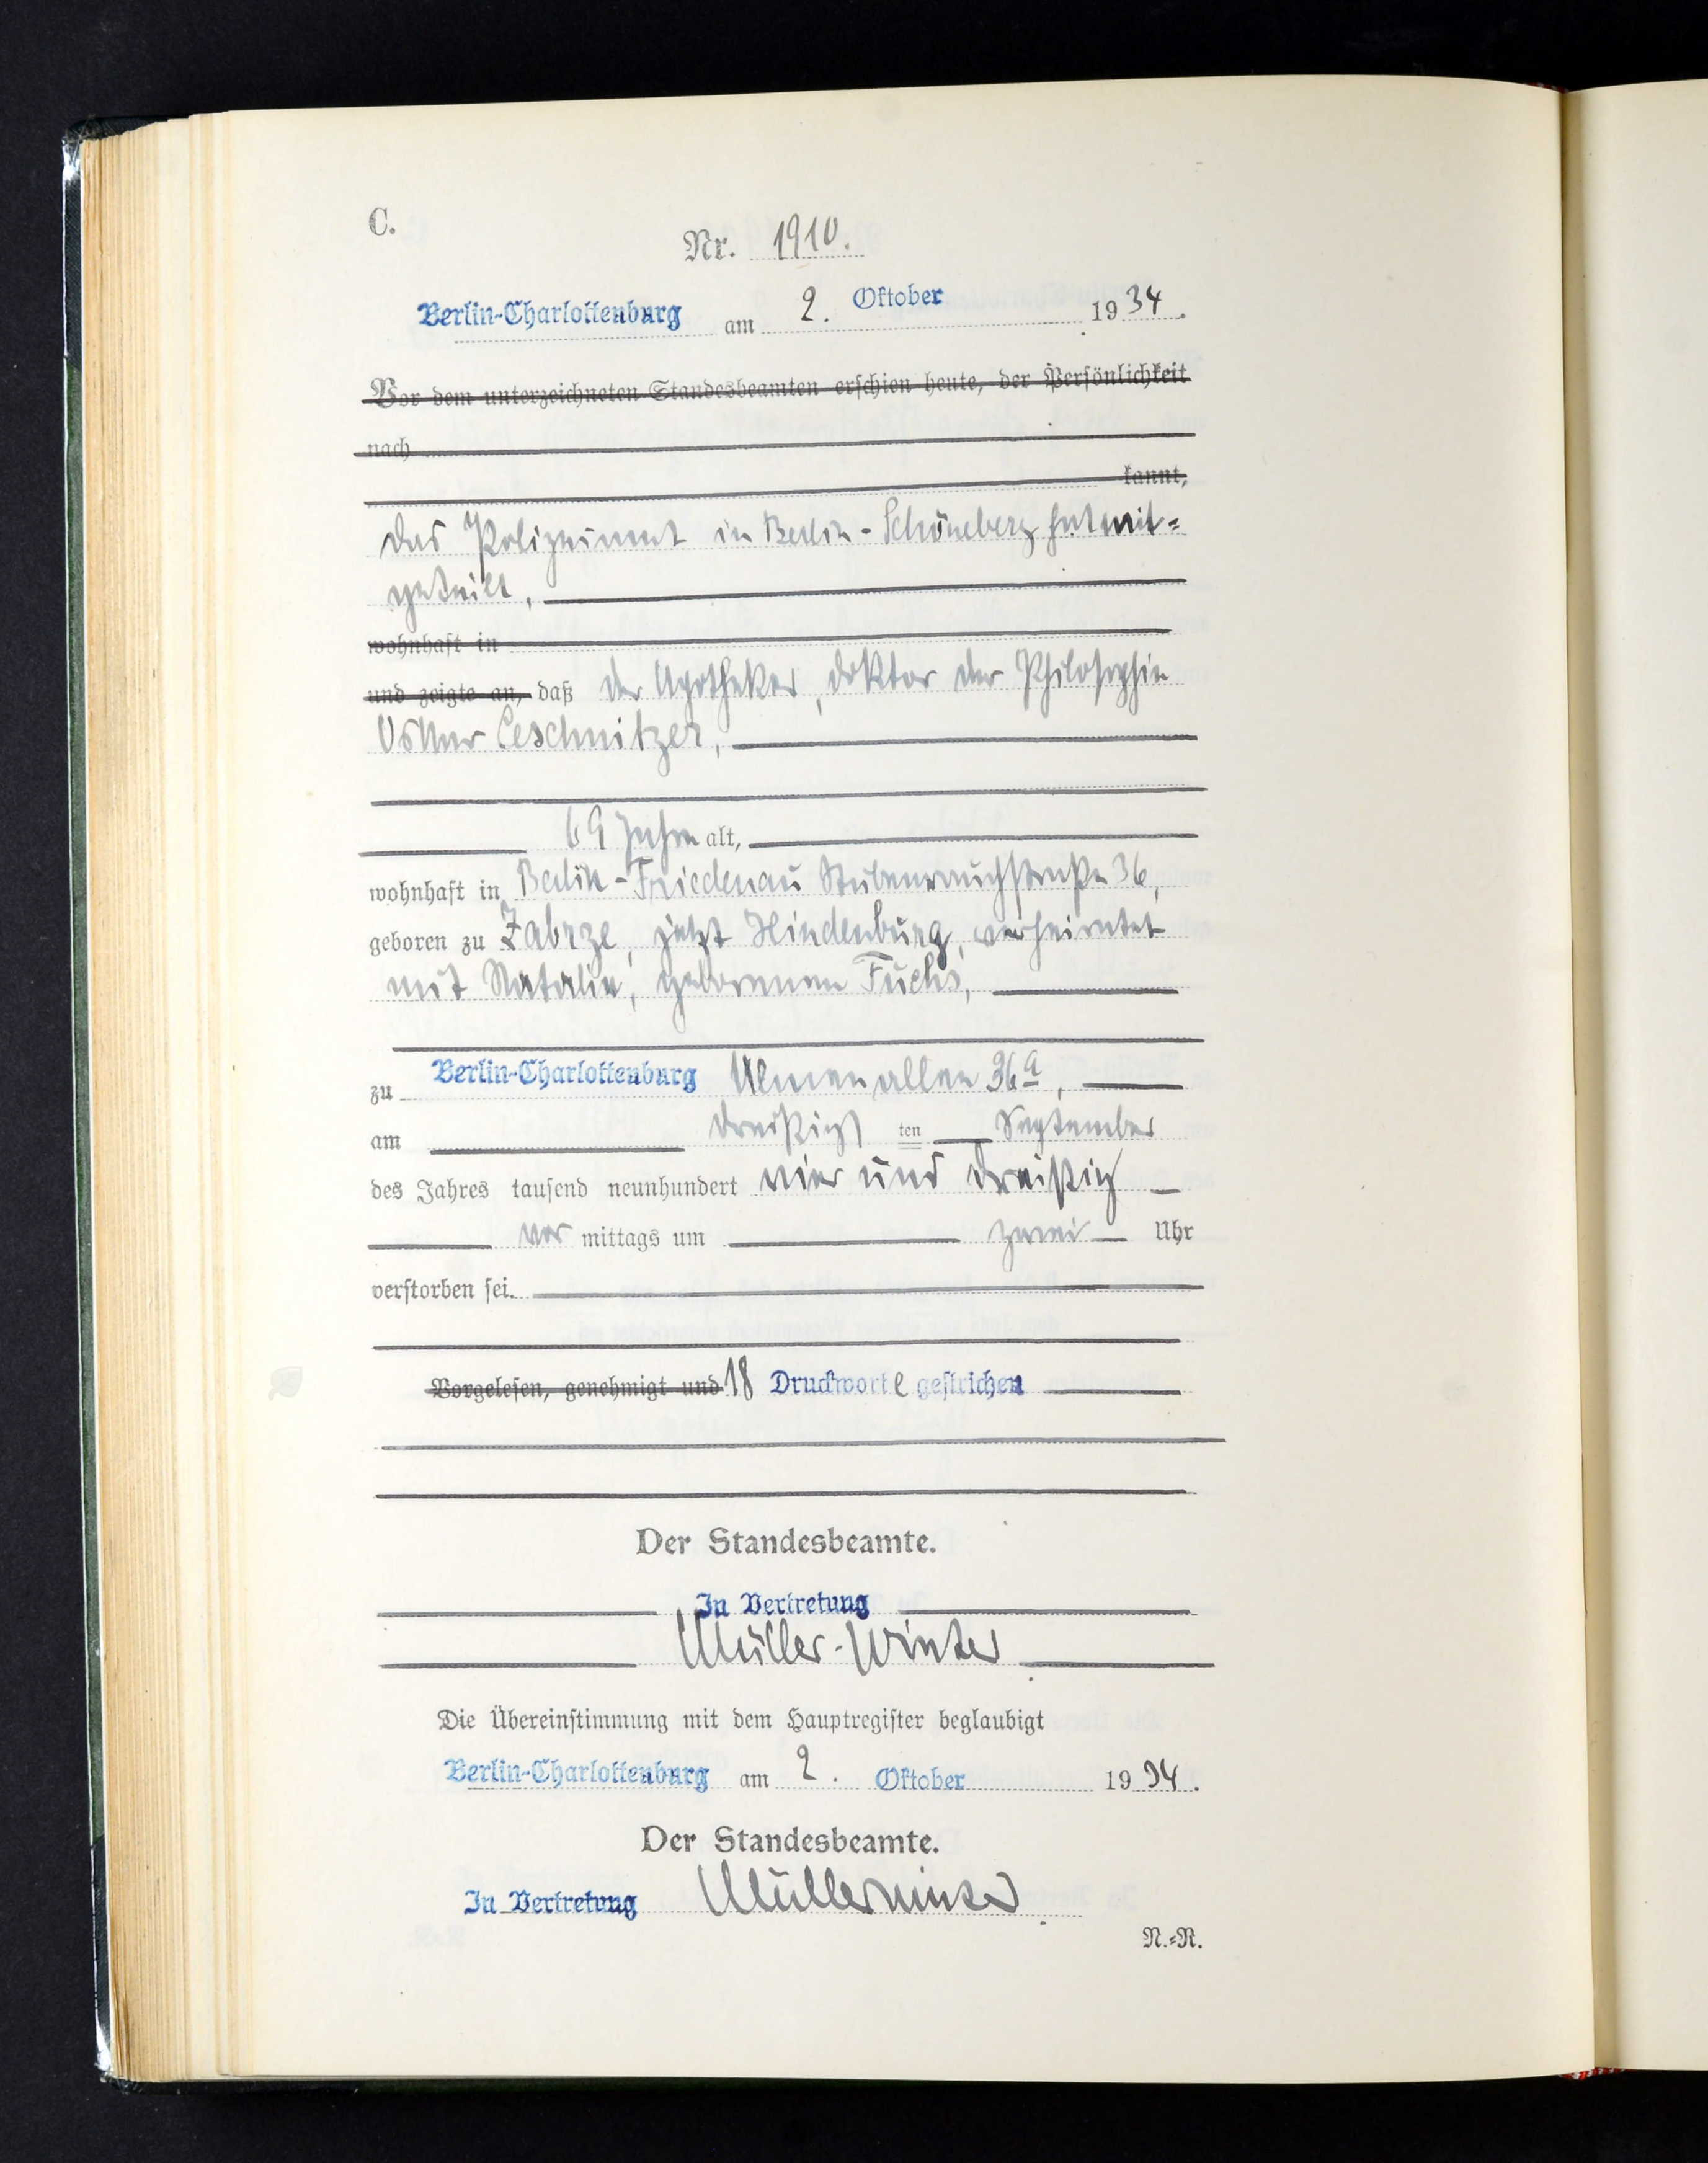 C.
Nr. 1910.
Berlin-Charlottenburg am 2. Oktober 1934.
Vor dem unterzeichneten Standesbeamten erschien heute, der Persönlichkeit
nach
kannt,
das Polizeiamt in Berlin-Schöneberg hat mit=
geteilt,
wohnhaft in
und zeigte an, daß der Apotheker, Doktor der Philosophie
Oskar Leschnitzer,
69 Jahre alt,
wohnhaft in Berlin-Friedenau Stubenrauchstraße 36,
geboren zu Zabrze, jetzt Hindenburg, verheiratet
mit Natalie, geborenen Fuchs,
zu Berlin-Charlottenburg Ulmenallee 36a,
am dreißigs ten September
des Jahres tausend neunhundert vier und dreißig
vor mittags um zwei Uhr
verstorben sei.
Vorgelesen, genehmigt und 18 Druckworte gestrichen
Der Standesbeamte.
In Vertretung
Müller-Winter
Die Übereinstimmung mit dem Hauptregister beglaubigt
Berlin-Charlottenburg am 2. Oktober 1934.
Der Standesbeamte.
In Vertretung Müllerwinter
N.=R.